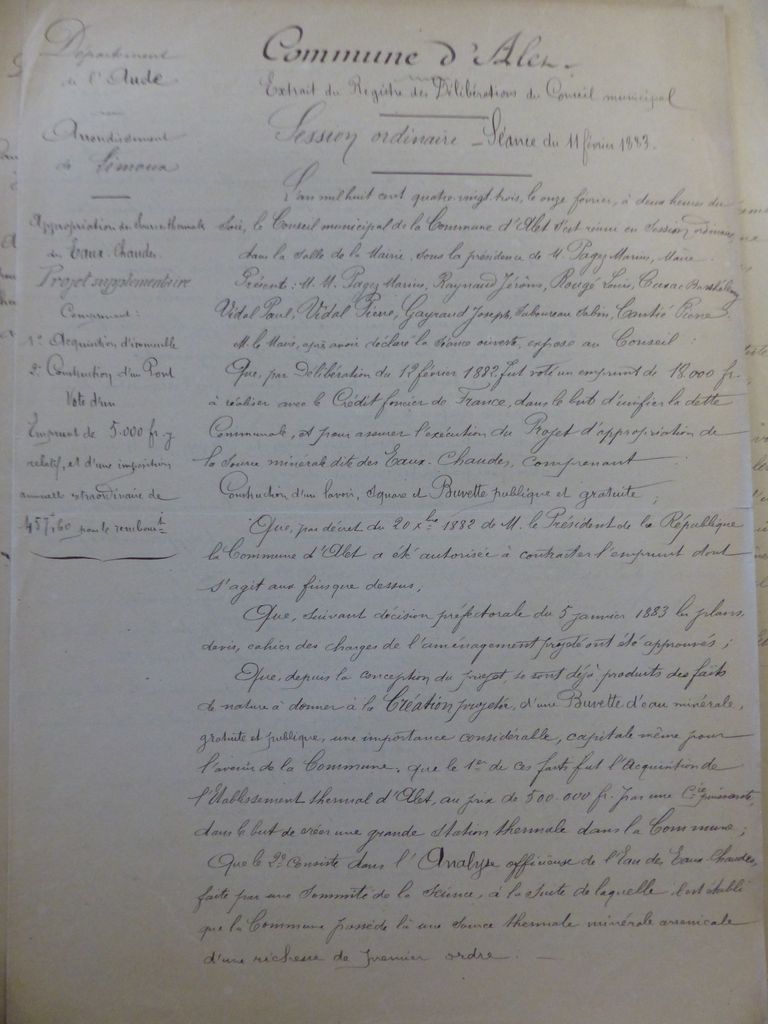 Département
de l'Aude
Arrondissement
de Limoux
Appropriation de Source thermale
des Eaux-Chaudes
Projet supplémentaire
Comprenant :
1º Acquisition d'immeuble
2º Construction d'un Pont
Vote d'un
Emprunt de 5.000 fr. y
relatif, et d'une imposition
annuelle extraordinaire de
457f,60 pour le rembourst
Commune d'Alet.
Extrait du Registre des Délibérations du Conseil municipal
Session ordinaire – Séance du 11 février 1883.
L'an mil huit cent quatre-vingt-trois, le onze février, à deux heures du
soir, le Conseil municipal de la Commune d'Alet s'est réuni en Session ordinaire
dans la Salle de la Mairie, sous la présidence de M. Pagez Marius, Maire.
Présents : M. M. Pagez Marius, Raynaud Jérôme, Rougé Louis, Barthélemy
Vidal Paul, Vidal Pierre, Gayraud Joseph, Pierre.
M. le Maire, après avoir déclaré la séance ouverte, expose au Conseil :
Que, par Délibération du 12 février 1882, fut voté un emprunt de 18.000 fr.,
à réaliser avec le Crédit foncier de France, dans le but d'unifier la dette
Communale, et pour assurer l'exécution du Projet d'appropriation de
la Source minérale dite des Eaux-Chaudes, comprenant :
Construction d'un lavoir, Square et Buvette publique et gratuite ;
Que, par décret du 20 Xbre 1882 de M. le Président de la République
la Commune d'Alet a été autorisée à contracter l'emprunt dont
s'agit aux fins que dessus,
Que, suivant décision préfectorale du 5 janvier 1883 les plans,
devis, cahier des charges de l'aménagement projeté ont été approuvés ;
Que, depuis la conception du projet, se sont déjà produits des faits
de nature à donner à la Création projetée, d'une Buvette d'eau minérale,
gratuite et publique, une importance considérable, capitale même pour
l'avenir de la Commune, que le 1er de ces faits fut l'Acquisition de
l'Etablissement thermal d'Alet, au prix de 500.000 fr. par une Cie puissante,
dans le but de créer une grande Station thermale dans la Commune ;
Que le 2º Consiste dans l'Analyse officieuse de l'Eau des Eaux-Chaudes,
faite par une Sommité de la Science, à la suite de laquelle il est établi
que la Commune possède là une Source thermale minérale arsenicale
d'une richesse de premier ordre. –